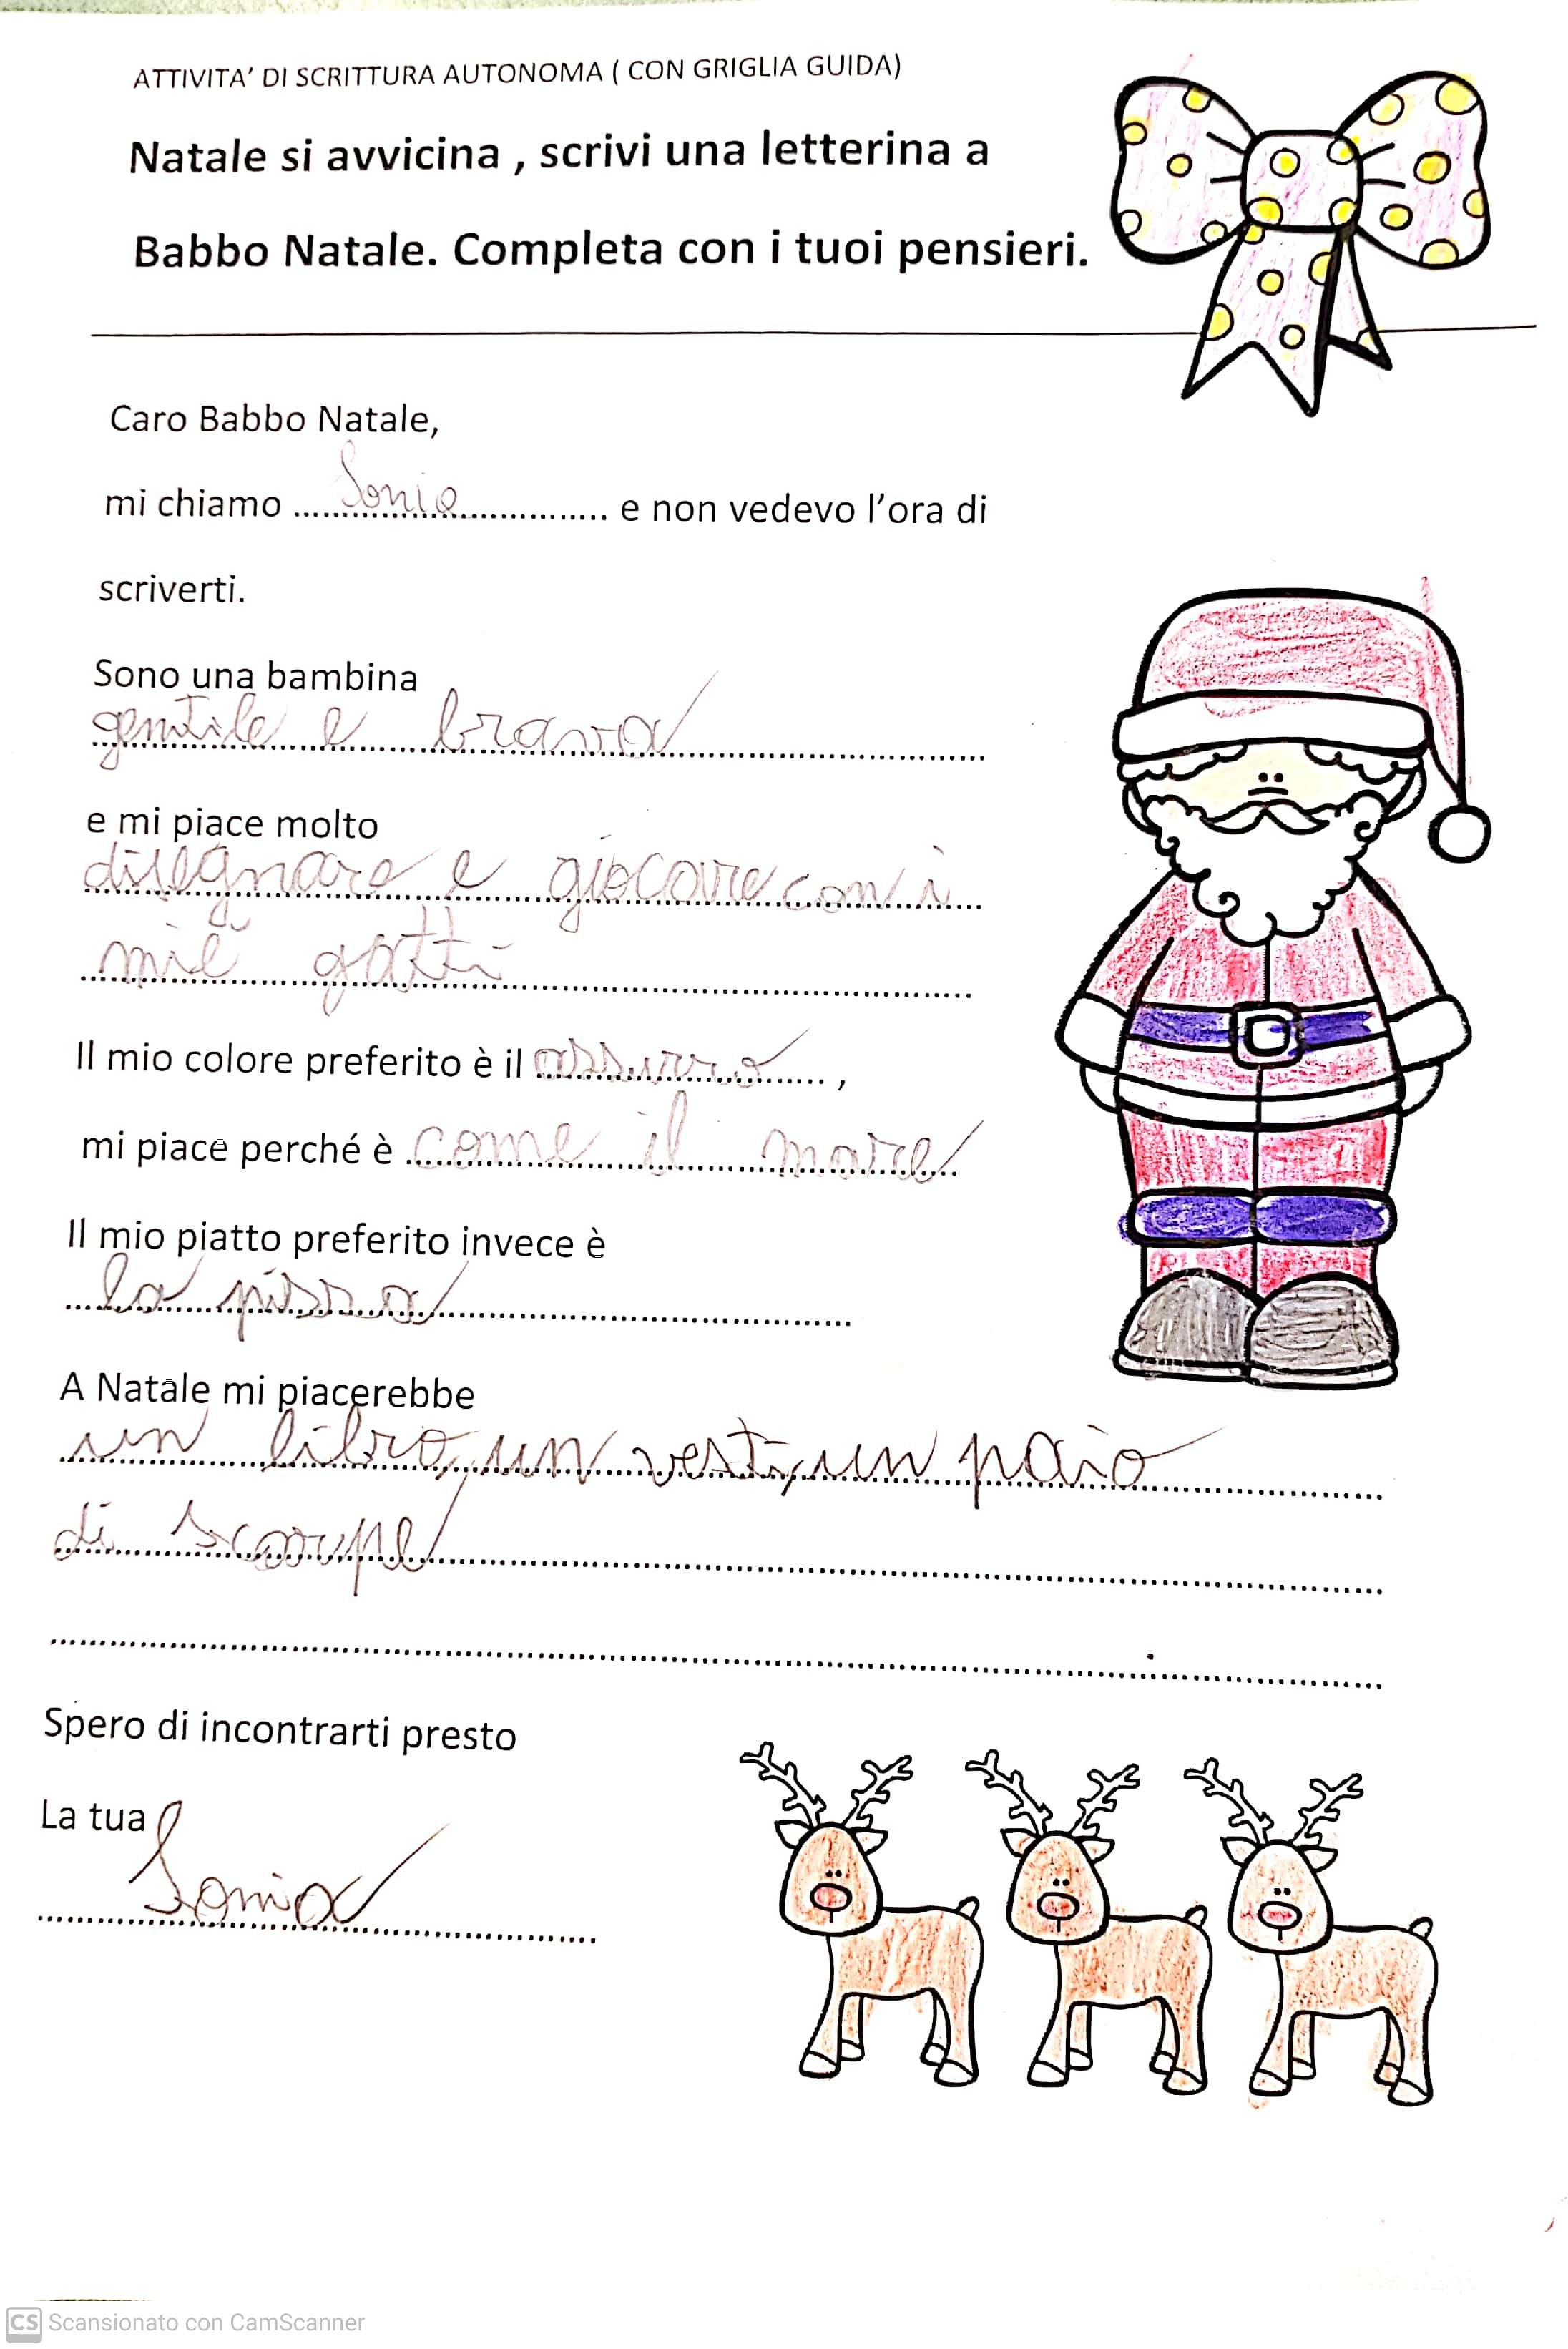 ATTIVITA' DI SCRITTURA AUTONOMA ( CON GRIGLIA GUIDA)
Natale si avvicina , scrivi una letterina a
Babbo Natale. Completa con i tuoi pensieri.
Caro Babbo Natale,
mi chiamo ....Sonia............ e non vedevo l'ora di
scriverti.
Sono una bambina
gentile e brava
e mi piace molto
disegnare e giocare con i
miei gatti
Il mio colore preferito è il azzurro ,
mi piace perché è come il mare
Il mio piatto preferito invece è
la pizza
A Natale mi piacerebbe
un libro, un vesti, un paio
di scarpe
Spero di incontrarti presto
La tua
Sonia
CS Scansionato con CamScanner